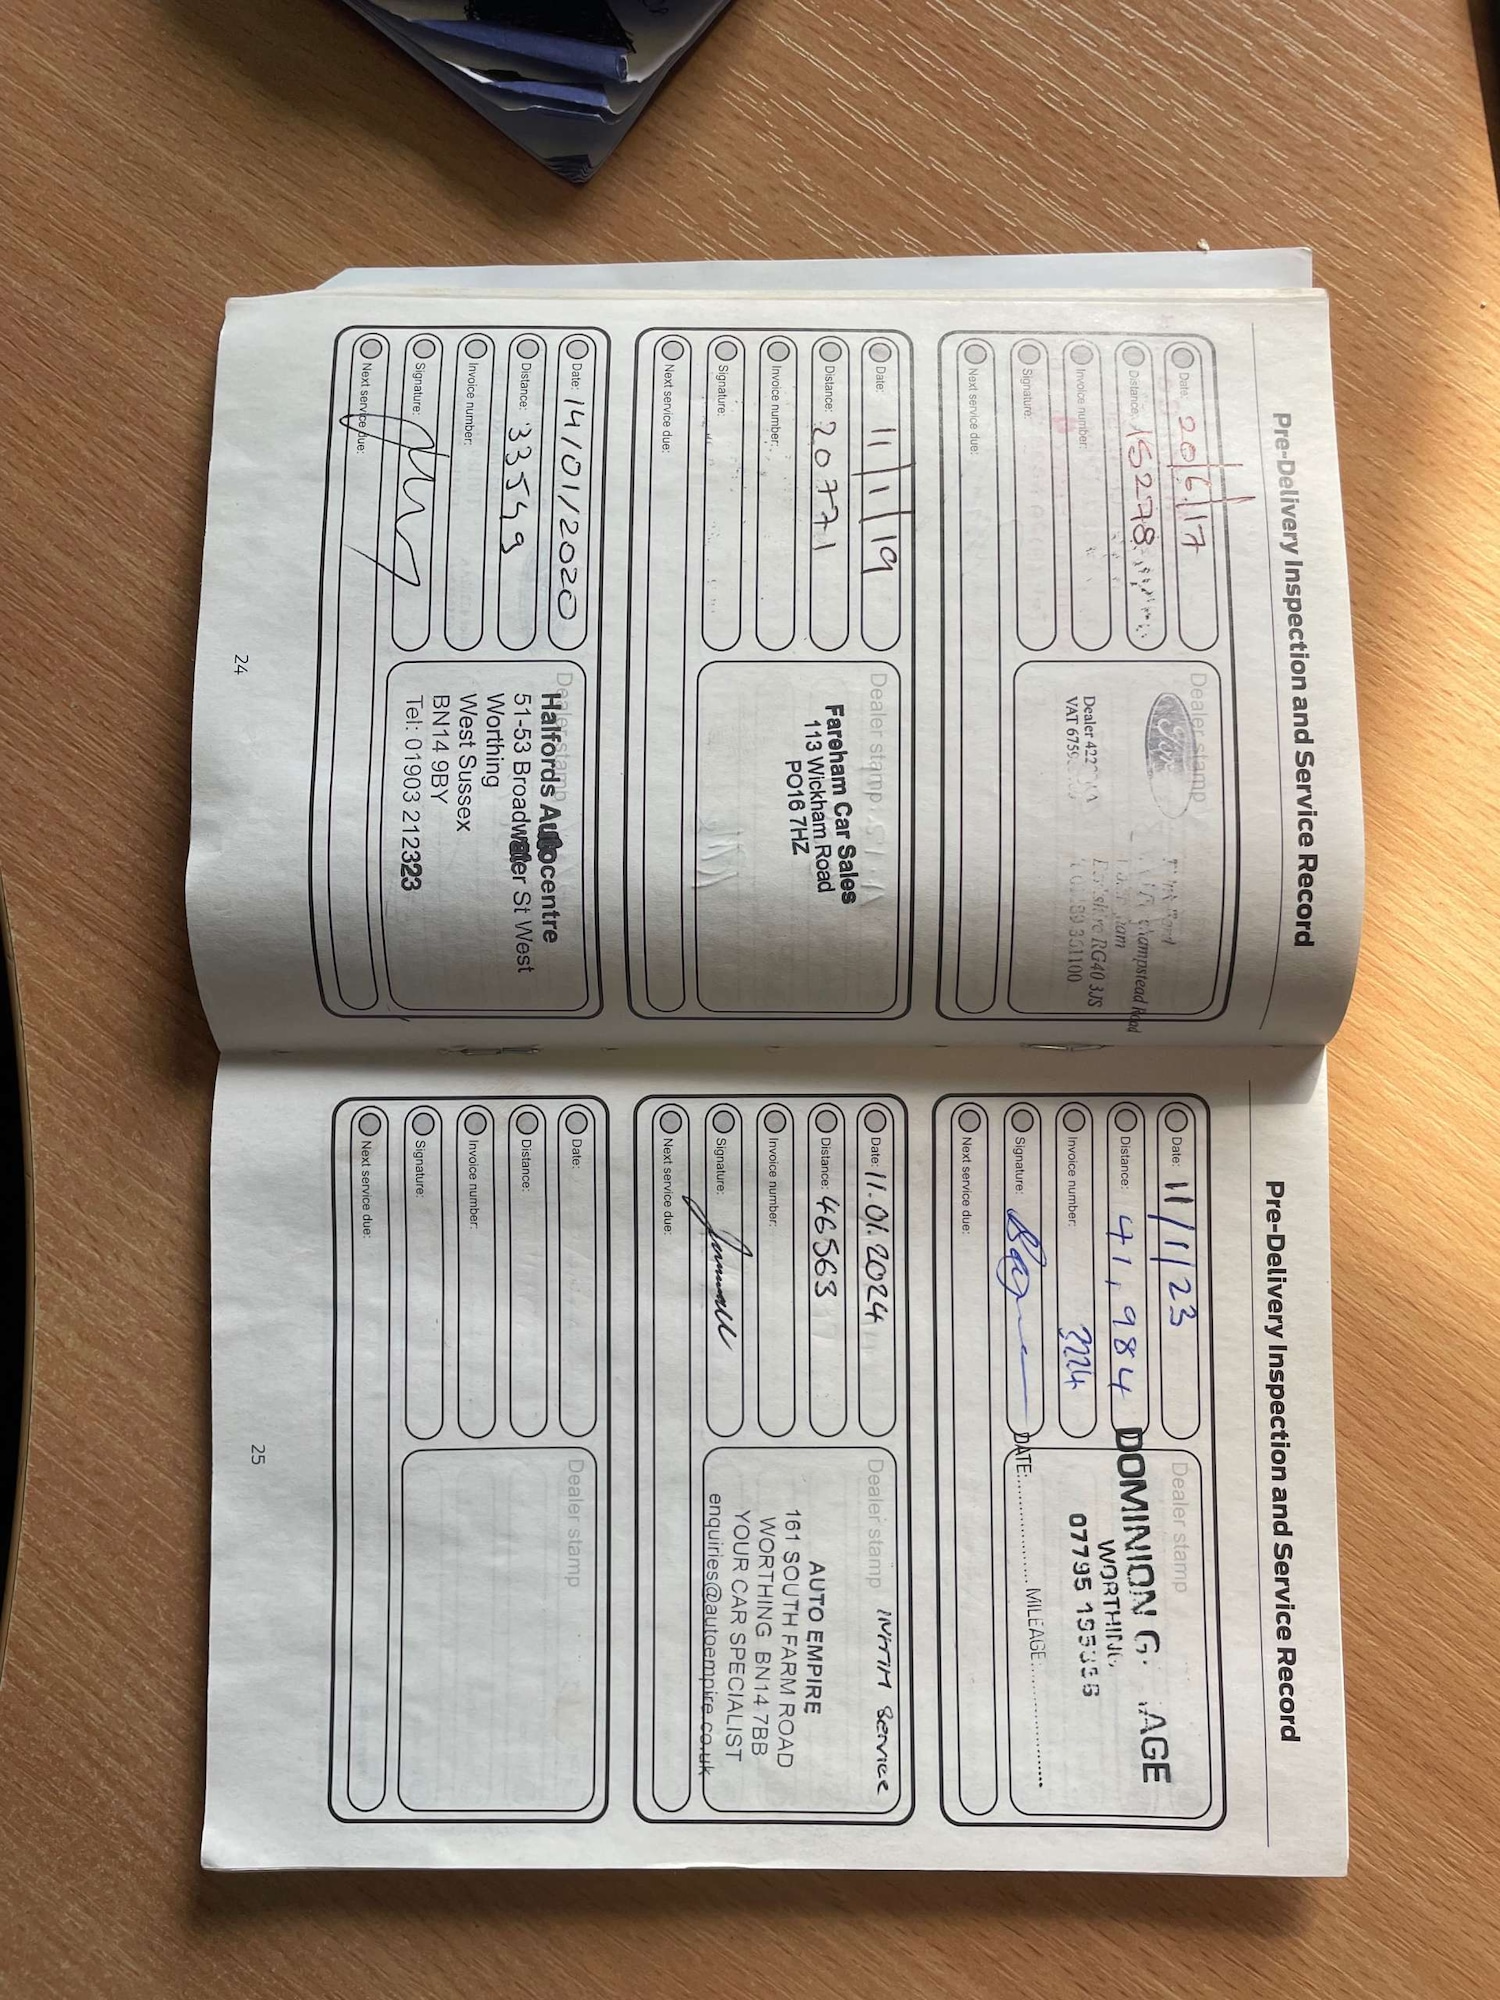 Pre-Delivery Inspection and Service Record
Date: 20/6/17
Distance: 15278
Invoice number:
Signature:
Next service due:
Dealer stamp
Ford
Hampstead Road
RG40 3JS
Dealer 422
VAT 6759
Date: 11/1/19
Distance: 20771
Invoice number:
Signature:
Next service due:
Dealer stamp
Fareham Car Sales
113 Wickham Road
PO16 7HZ
Date: 14/01/2020
Distance: 33549
Invoice number:
Signature:
Next service due:
Dealer stamp
Halfords Autocentre
51-53 Broadwater St West
Worthing
West Sussex
BN14 9BY
Tel: 01903 212323
24
Pre-Delivery Inspection and Service Record
Date: 11/1/23
Distance: 41,984
Invoice number:
Signature:
Next service due:
Dealer stamp
DOMINION G AGE
WORTHING
07795
DATE:.................. MILEAGE:..................
Date: 11.01.2024
Distance: 46563
Invoice number:
Signature:
Next service due:
Dealer stamp
Service
AUTO EMPIRE
161 SOUTH FARM ROAD
WORTHING BN14 7BB
YOUR CAR SPECIALIST
enquiries@autoempire.co.uk
Date:
Distance:
Invoice number:
Signature:
Next service due:
Dealer stamp
25